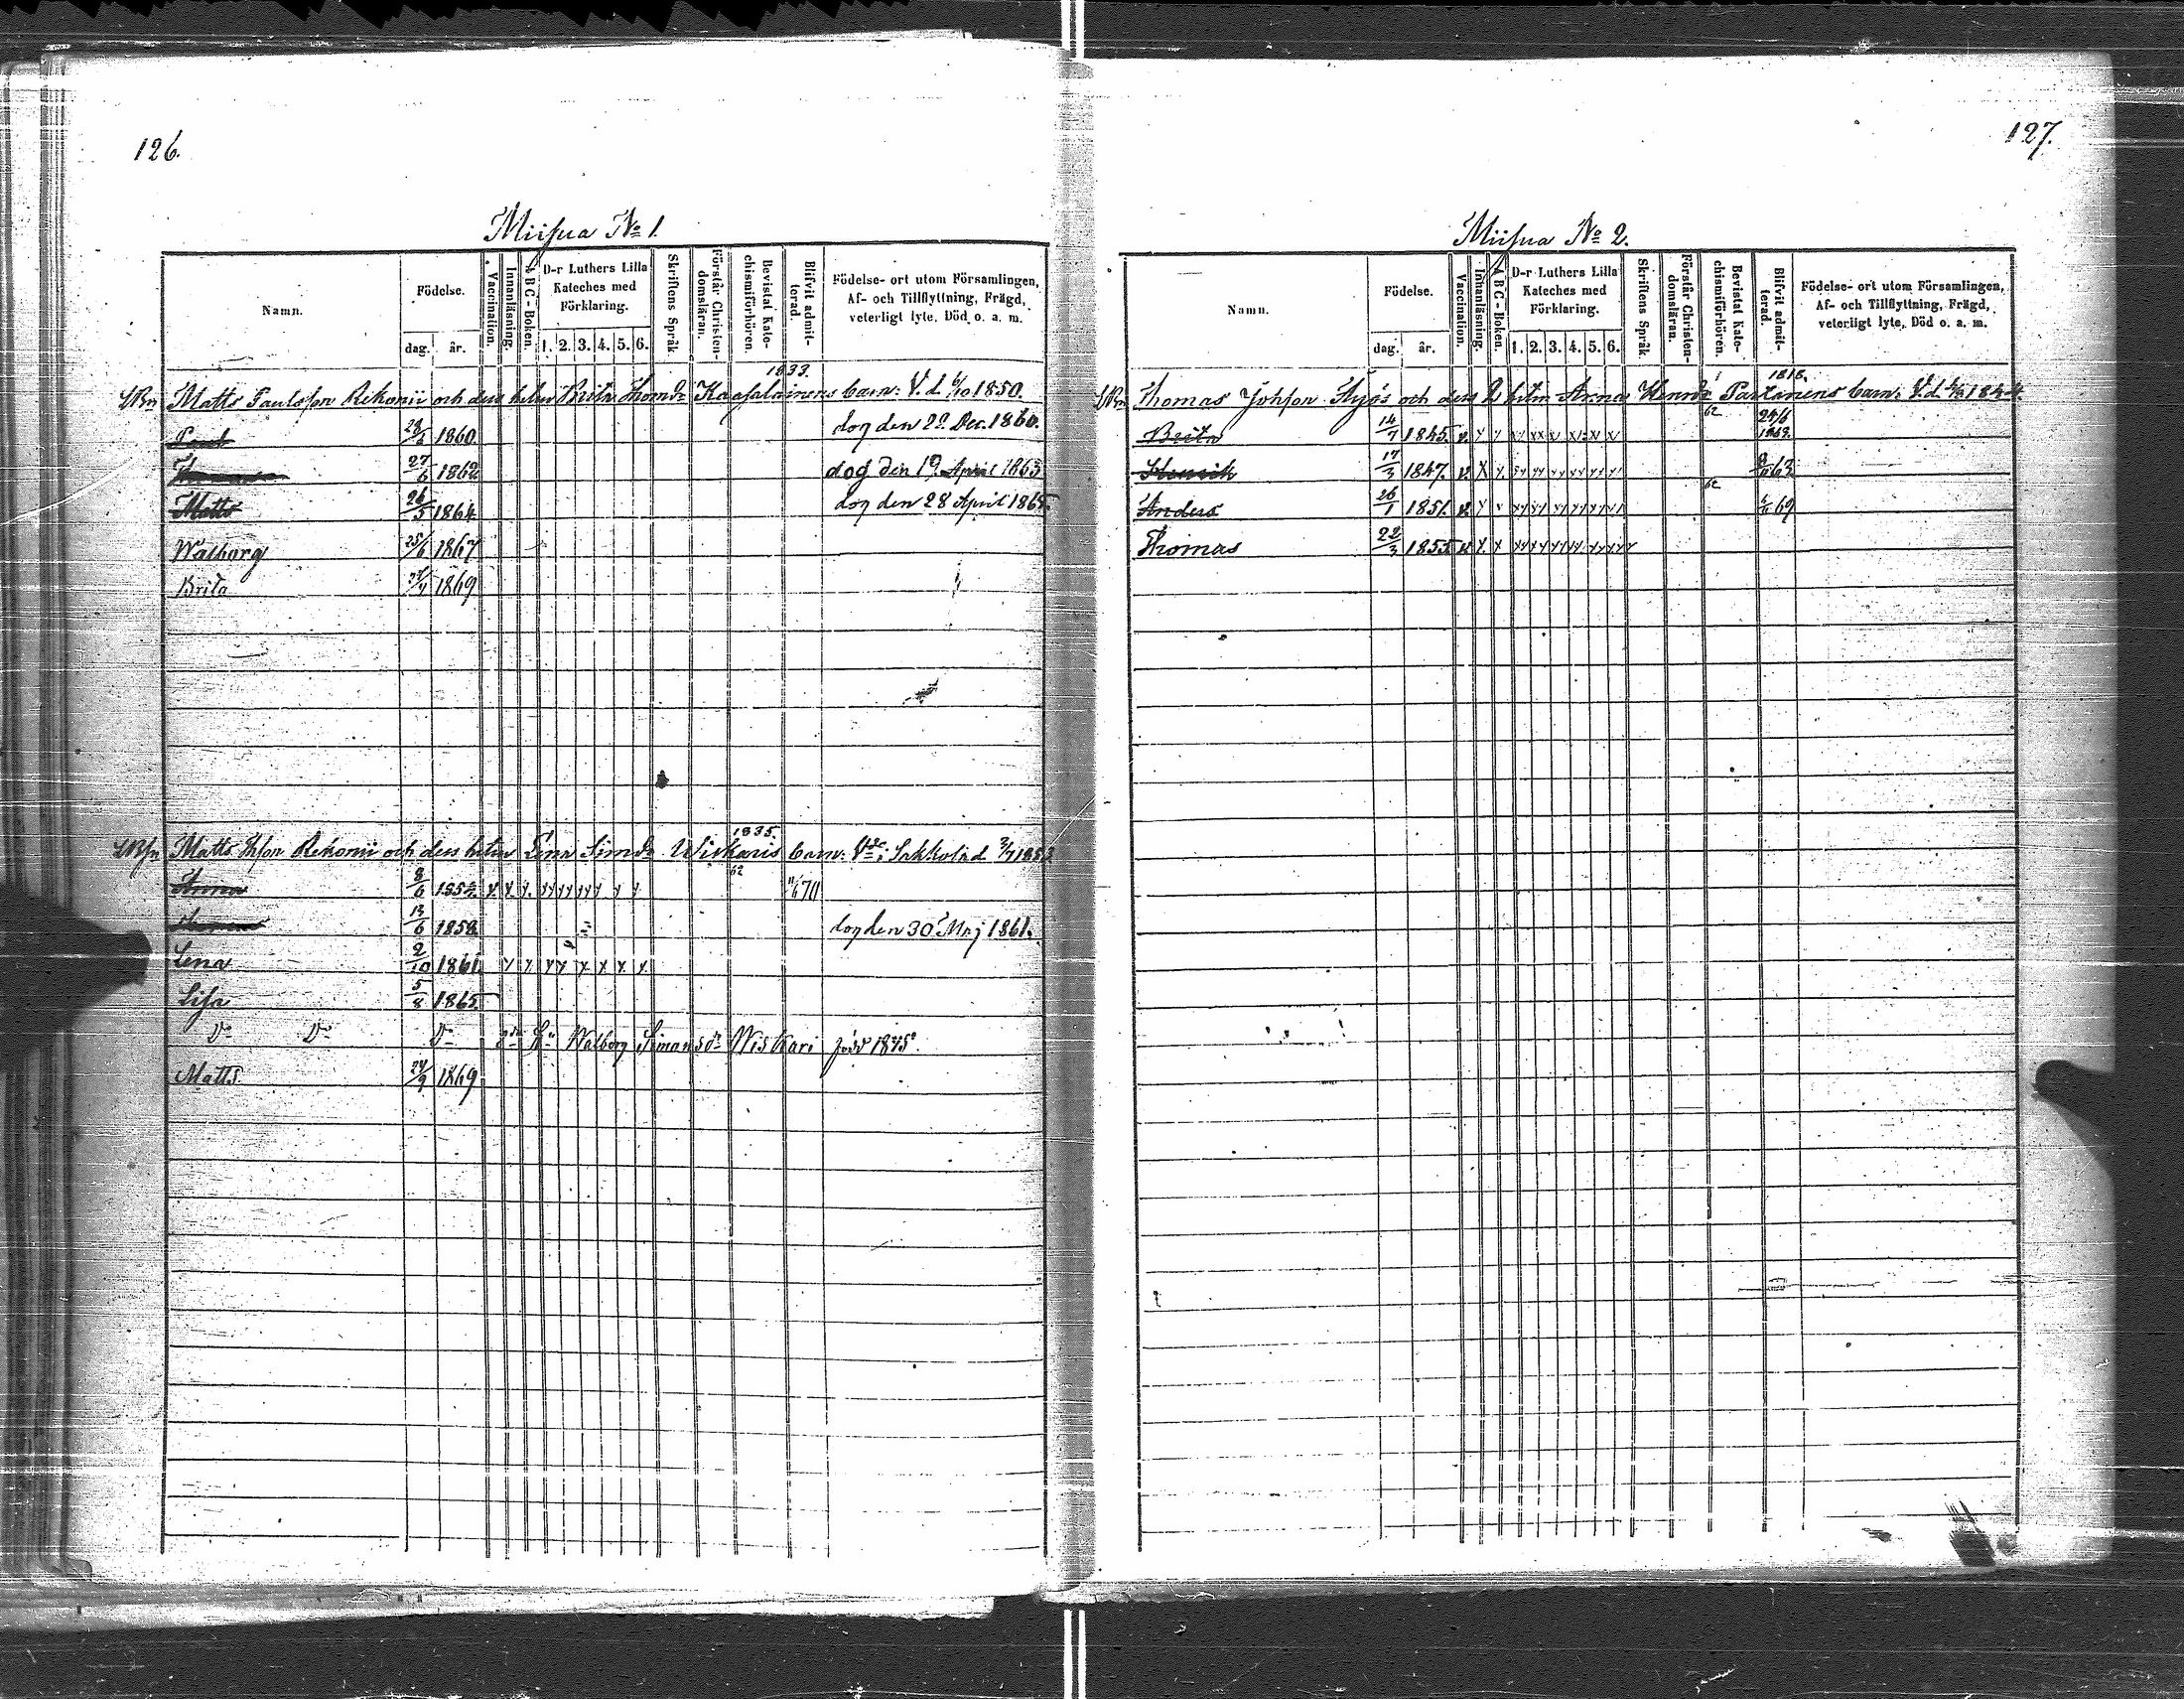 126.
Miisua No 1.
Namn.
Födelse.
dag. år.
Vaccination.
Innanläsning.
ABC-Boken.
D-r Luthers Lilla Kateches med Förklaring.
1. 2. 3. 4. 5. 6.
Skriftens Språk
Förstår Christendomsläran.
Bevistat Katechismiförhören.
Blifvit admitterad.
Födelse- ort utom Församlingen, Af- och Tillflyttning, Frägd, veterligt lyte, Död o. a. m.
1833.
Matts Paulsson Rekonii och dess hstru Brita Thomsdr Kaasalainens barn: V. d. 6/10 1850.
Paul 28/6 1860 dog den 29 Dec. 1860.
Thomas 27/6 1862 dog den 19 April 1863
Matts 26/5 1864 dog den 28 April 1865.
Walborg 25/6 1867
Brita 1869
1835.
Matts Rekonii och dess hstru Lena Simsdr Wiskaris barn: Sakkola d 1853
62
Anna 8/6 1852 v. x x. xx xx xx x x x 11/6 70
Thomas 13/6 1858 dog den 30 Maj 1861.
Lena 2/10 1861 x x x x x x x x
Lisa 5/8 1865
Do Do Do 2dra Hu Walborg Simonsdr Wiskari född 1845.
Matts 24/9 1869
127.
Miisua No 2.
Namn.
Födelse.
dag. år.
Vaccination.
Innanläsning.
ABC-Boken.
D-r Luthers Lilla Kateches med Förklaring.
1. 2. 3. 4. 5. 6.
Skriftens Språk
Förstår Christendomsläran.
Bevistat Katechismiförhören.
Blifvit admitterad.
Födelse- ort utom Församlingen, Af- och Tillflyttning, Frägd, veterligt lyte, Död o. a. m.
1818.
Thomas Johsson Hyös och dess hstru Anna Henrsdr Partanens barn: V. d. 1844.
Brita 14/7 1845. v. x x xx xx x xx x x 62 24/6 1863.
Henrik 17/3 1847. v. x x. xx xx xx xx xx 63
Anders 26/1 1851. v. x x xx xx xx xx xx 62 69
Thomas 22/3 1855 v. x. x xx xx xx xx xx xx